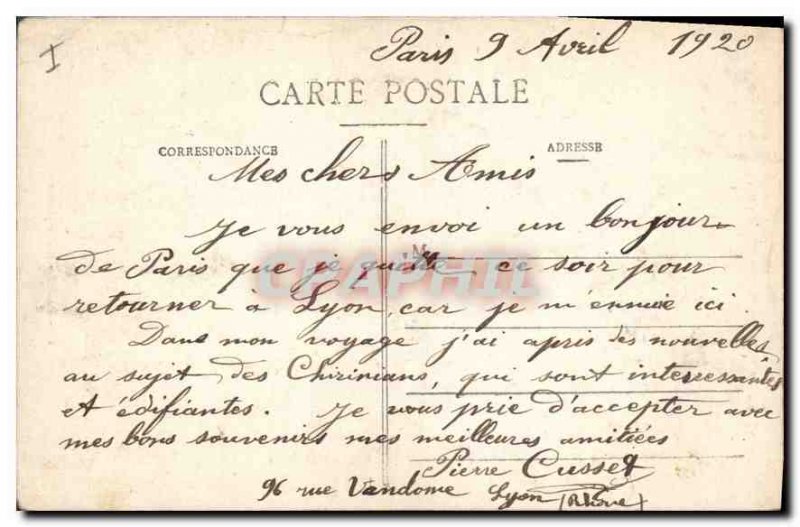 I
Paris 9 Avril 1920
CARTE POSTALE
CORRESPONDANCE
ADRESSE
Mes chers Amis
Je vous envoi un bonjour
de Paris que je quitte ce soir pour
retourner à Lyon, car je m'ennuie ici.
Dans mon voyage j'ai apris des nouvelles
au sujet des Chirinians, qui sont interressantes
et édifiantes. Je vous prie d'accepter avec
mes bons souvenirs mes meilleures amitiées
Pierre Cusset
96 rue Vandome Lyon (Rhône)
CPAPHIL